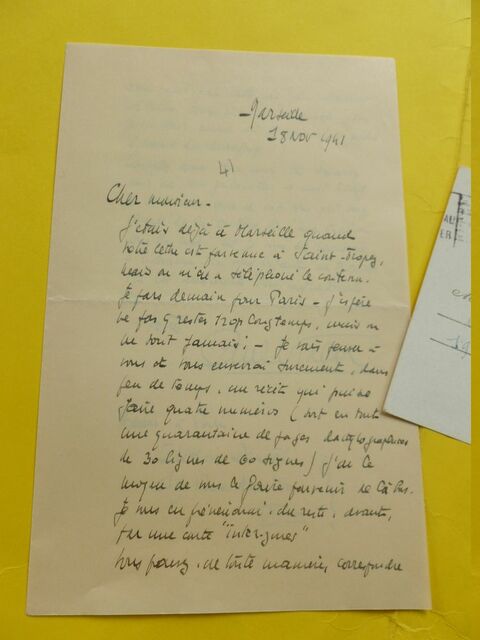 Marseille
18 Nov 1941
41
Cher monsieur -
J'étais déjà à Marseille quand
votre lettre est parvenue à Saint-Tropez,
mais on m'en a téléphoné le contenu.
Je pars demain pour Paris - J'espère
ne pas y rester trop longtemps, mais on
ne sait jamais ! - Je vais penser à
vous et vous enverrai surement, dans
peu de temps, un récit qui puisse
faire quatre numéros (soit en tout
une quarantaine de pages dactylographiées
de 30 lignes de 60 signes) J'ai le
moyen de vous le faire parvenir de là bas.
Je vous en préviendrai, du reste, avant,
par une carte "interzones"
Vous pouvez, de toute manière, correspondre
19